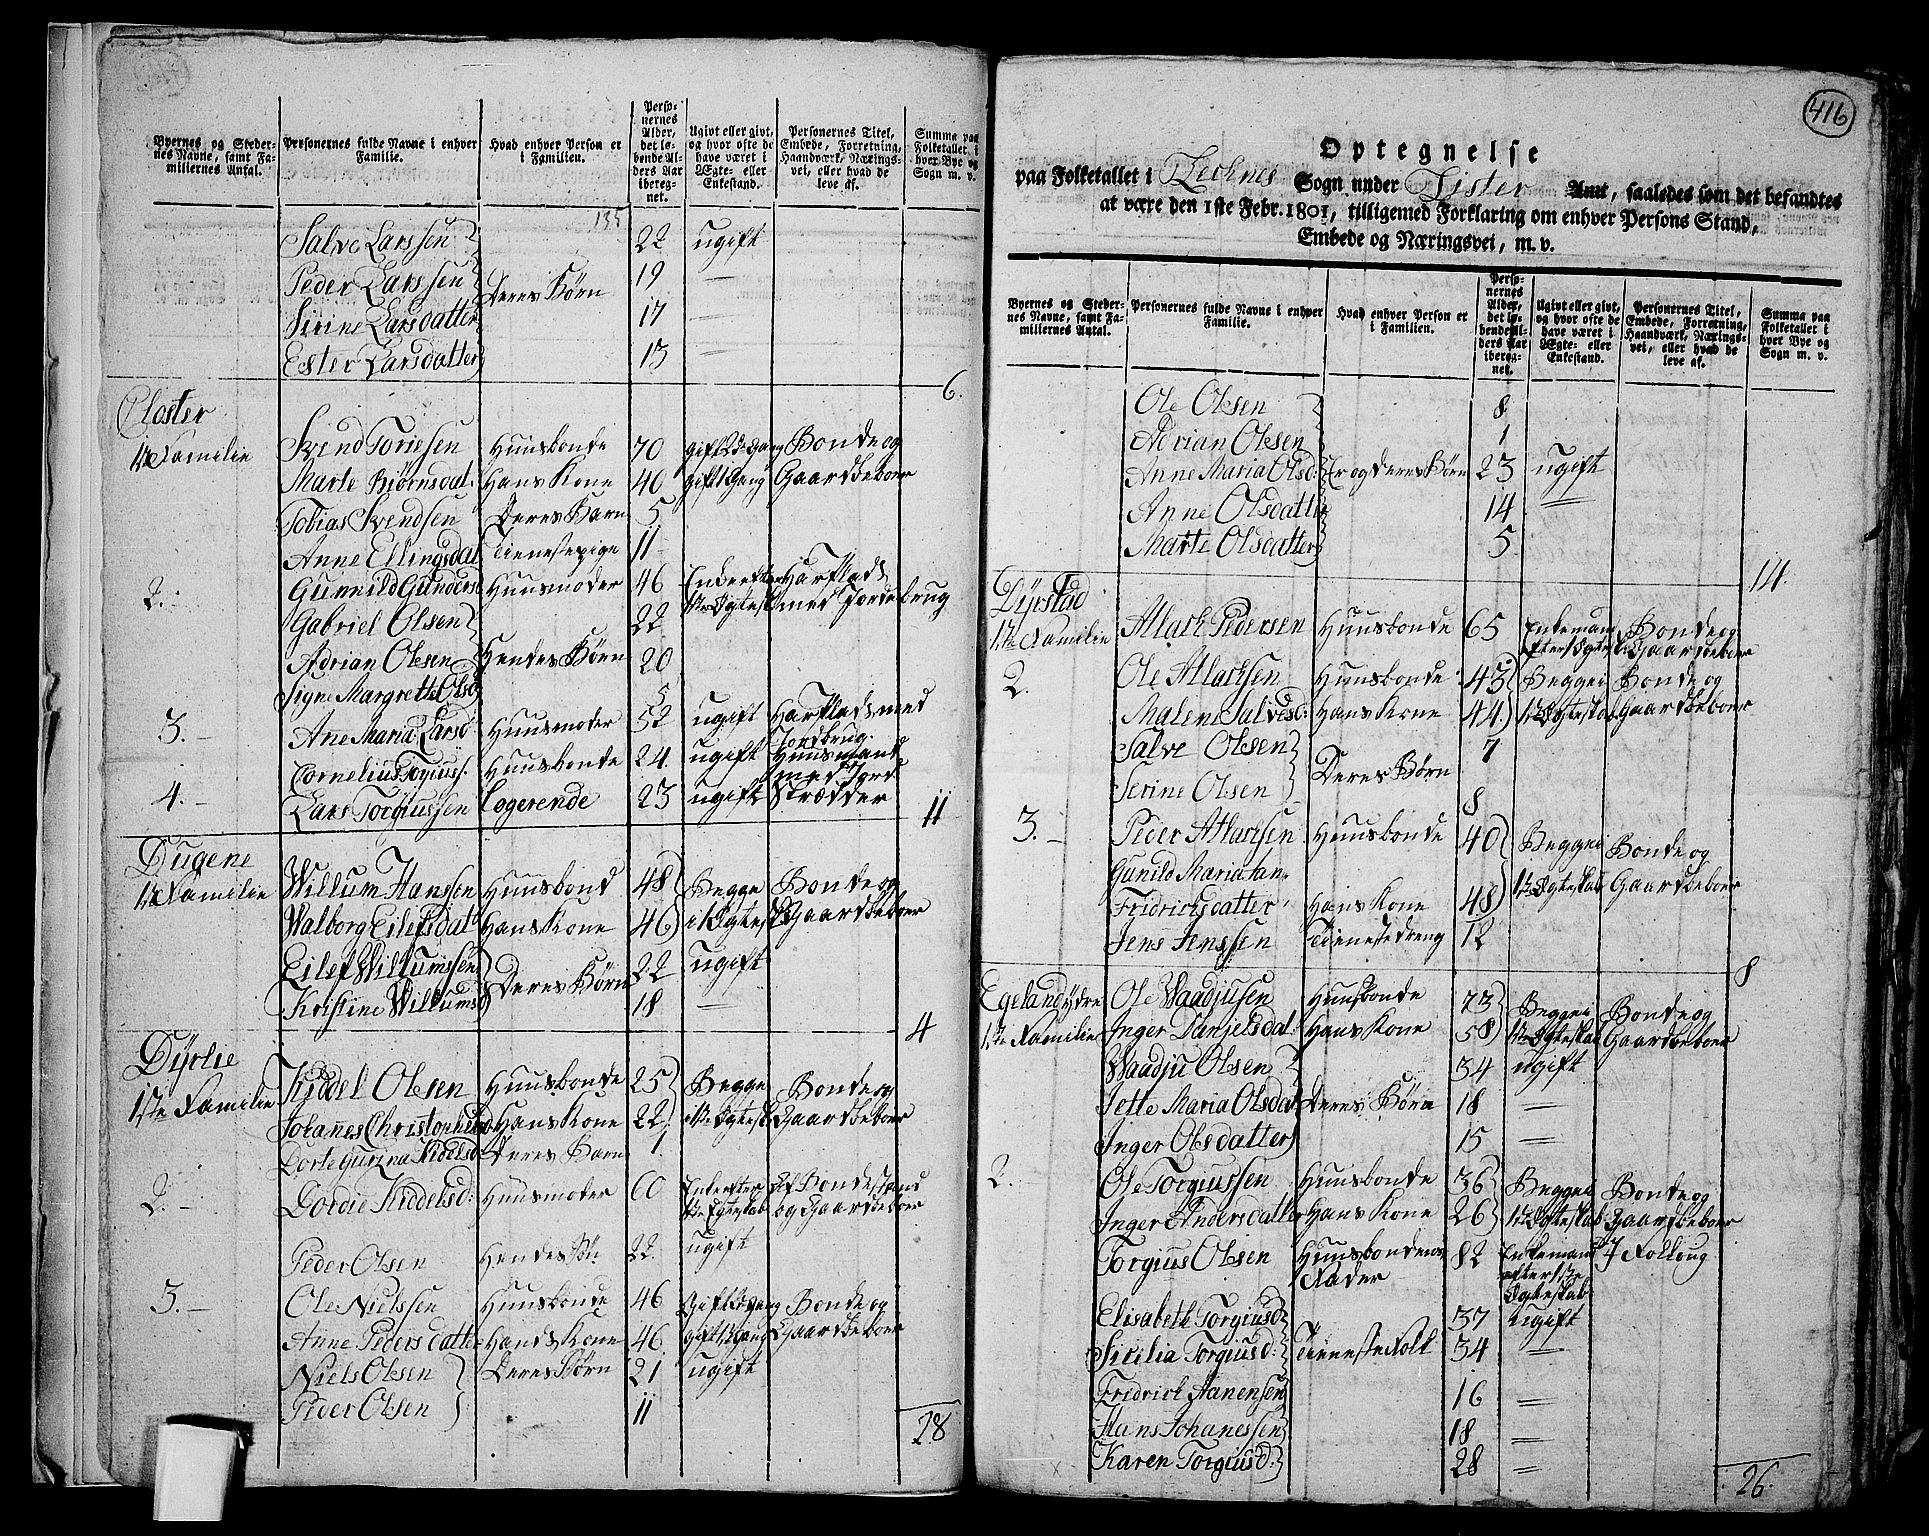 Byernes og Steder-
nes Navne, samt Fa-
miliernes Antal.
Personernes fulde Navne i enhver
Familie.
Hvad enhver Person er
i Familien.
Perso-
nernes
Alder,
det lø-
bende Al-
ders Aar
ibereg-
net.
Ugivt eller givt,
og hvor ofte de
have været i
Ægte- eller
Enkestand.
Personernes Titel,
Embede, Forretning,
Haandværk, Nærings-
vei, eller hvad de
leve af.
Summa paa
Folketallet i
hver Bye og
Sogn m. v.
135
Salve Larssen 22 ugift
Peder Larssen Deres Børn 19 —
Sirine Larsdatter 17 —
Ester Larsdatter 13 —
6.
Closter
1ste Familie Svend Toriesen Huusbonde 70 gift 2de Gang Bonde og
Marte Biørnsdat: Hans Kone 40 gift 1 Gang Gaardbeboer
Tobias Svendsen Deres Barn 5
Anne Ellingsdat Tienestepige 11
2. Gunnild Gunders Huusmoder 46 Enke efter
1ste Egtesk med Jordebrug
Gabriel Olsen 22
Adrian Olsen Hendes Børn 20
Signe Margrethe Olsd 5
3. Ane Maria Larsd Huusmoder 52 ugift
Jordbrug.
4. Cornelius Torgiuss. Huusbonde 24. ugift Huusmand
med Jord
Lars Torgiussen Logerende 23 ugift Skrædder 11
Dugene
1ste Familie Willum Hanssen Huusbond 48 Begge Bonde og
Walborg Eilefsdat Hans Kone 46 i 1ste Egtesk Gaardbeboer
Eilef Willumssen Deres Børn 22 ugift
Kristine Willums 18 —
4
Dyrlie
1ste Familie Kiddel Olsen Huusbonde 25 Begge Bonde og
Johannes Christophersd Hans Kone 22 1ste Egtesk Gaardbeboer
Dorte Gurina Kidelsd Deres Barn 1.
2. Dordie Kiddelsd: Huusmoder 60 Enke efter Af Bondestand
1ste Egteskab og Gaardbeboer
Peder Olsen Hendes Sön 22. ugift
3. Ole Nielssen Huusbonde 46 Gift 2de Gang Bonde og
Anne Pedersdatter Hands Kone 46 gift 1 Gang Gaardbeboer
Niels Olsen Deres Børn 21 ugift
Peder Olsen 11
28
416
Optegnelse
paa Folketallet i Sogn under Lister Amt, saaledes som det befandtes
at være den 1ste Febr. 1801, tilligemed Forklaring om enhver Persons Stand,
Embede og Næringsvei, m. v.
Byernes og Steder-
nes Navne, samt Fa-
miliernes Antal.
Personernes fulde Navne i enhver
Familie.
Hvad enhver Person er
i Familien.
Perso-
nernes
Alder,
det lø-
bende Al-
ders Aar
ibereg-
net.
Ugivt eller givt,
og hvor ofte de
have været i
Ægte- eller
Enkestand.
Personernes Titel,
Embede, Forretning,
Haandværk, Nærings-
vei, eller hvad de
leve af.
Summa paa
Folketallet i
hver Bye og
Sogn m. v.
Ole Olsen 8
Adrian Olsen 1
Anne Maria Olsd: og deres Børn 23 ugift
Anne Olsdatter 14 —
Marte Olsdatter 5
14.
Dyrstad
1ste Familie Atlack Pedersen Huusbonde 65 Enkemand Bonde og
efter 1 Egtesk Gaardbeboer
2. Ole Atlacksen Huusbonde 43 Begge i Bonde og
Malene Salvesd: Hans Kone 44 1ste Egteskab Gaardbeboer
Salve Olsen Deres Børn 7
Serine Olsen 8
3. — Peder Atlacksen Huusbonde 40 Begge i Bonde og
Gunild Maria
Fridrichsdatter Hans Kone 48 1ste Egteskab Gaardbeboer
Jens Jenssen Tienestedreng 12
8
Egeland ydre Ole Waadjusen Huusbonde 73 Begge i Bonde og
1ste Familie Inger Danjelsdat: Hans Kone 58 1ste Egteskab Gaardbeboer
Waadju Olsen 34 ugift
Jette Maria Olsdat Deres Børn 18 —
Inger Olsdatter 15 —
2. Ole Torgiussen Huusbonde 36 Begge i Bonde og
Inger Andersdatter Hans Kone 26 1ste Egteskab Gaardbeboer
Torgius Olsen Huusbondens 82 Enkemand
Fader efter 1ste
Egteskab
Elisabeth Torgiusd 37 ugift
Sicilia Torgiusd: Tienestefolk 34 —
Fridrich Aanensen 16 —
Hans Johanessen 18 —
Karen Torgiusd: 28 —
26.